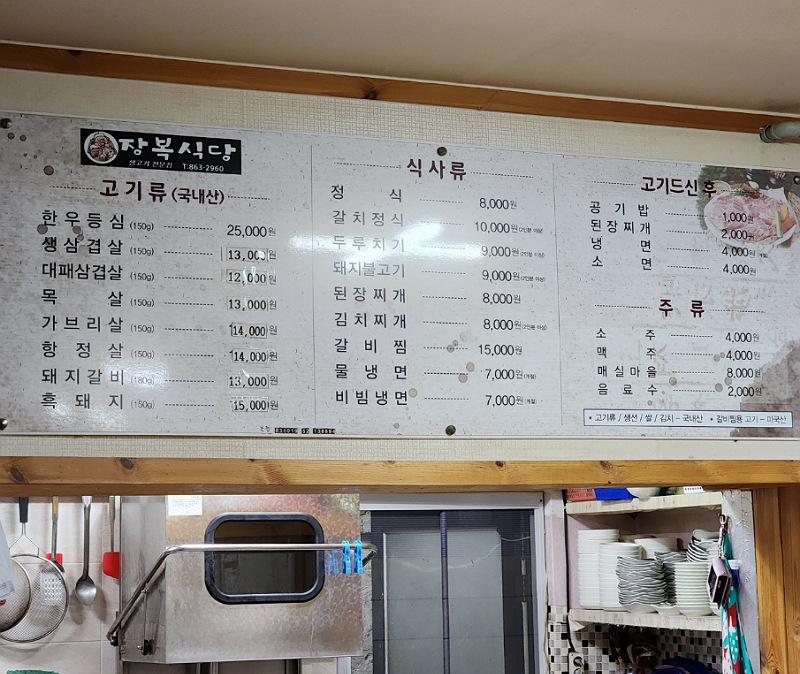 장복식당
생고기 전문점 T.863-2960
고기류 (국내산)
한우등심 (150g) 25,000원
생삼겹살 (150g) 13,000원
대패삼겹살 (150g) 12,000원
목살 (150g) 13,000원
가브리살 (150g) 14,000원
항정살 (150g) 14,000원
돼지갈비 (180g) 13,000원
흑돼지 (150g) 15,000원
식사류
정식 8,000원
갈치정식 10,000원 (2인분 이상)
두루치기 9,000원 (2인분 이상)
돼지불고기 9,000원 (2인분 이상)
된장찌개 8,000원
김치찌개 8,000원 (2인분 이상)
갈비찜 15,000원
물냉면 7,000원 (계절)
비빔냉면 7,000원 (계절)
고기드신 후
공기밥 1,000원
된장찌개 2,000원
냉면 4,000원 (계절)
소면 4,000원
주류
소주 4,000원
맥주 4,000원
매실마을 8,000원
음료수 2,000원
• 고기류 / 생선 / 쌀 / 김치 – 국내산 • 갈비찜용 고기 – 미국산